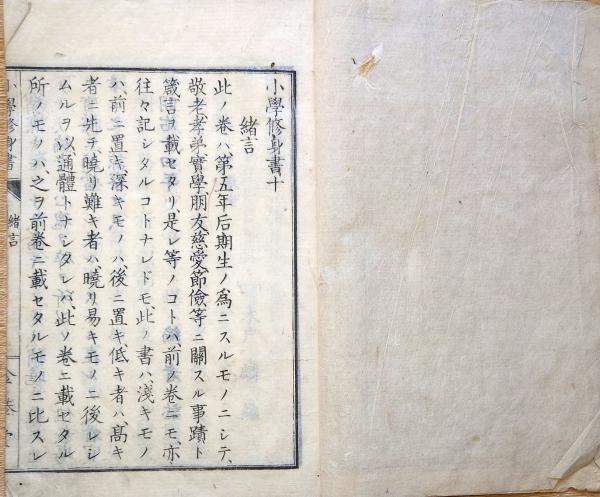 小學修身書十
緒言
此ノ卷ハ、第五年后期生ノ爲ニスルモノニシテ、
敬老孝弟實學朋友慈愛節儉等ニ關スル事蹟ト
箴言ヲ載セタリ是レ等ノコトハ、前ノ卷ニモ、亦
往々記シタルコトナレドモ、此ノ書ハ、淺キモノ
ハ、前ニ置キ、深キモノハ、後ニ置キ、低キ者ハ、高キ
者ニ先チ、曉リ難キ者ハ、曉リ易キモノニ後レシ
ムルヲ以、通體トナシタレバ、此ノ卷ニ載セタル
所ノモノハ、之ヲ前卷ニ載セタルモノニ比スレ
小學修身書
緒言